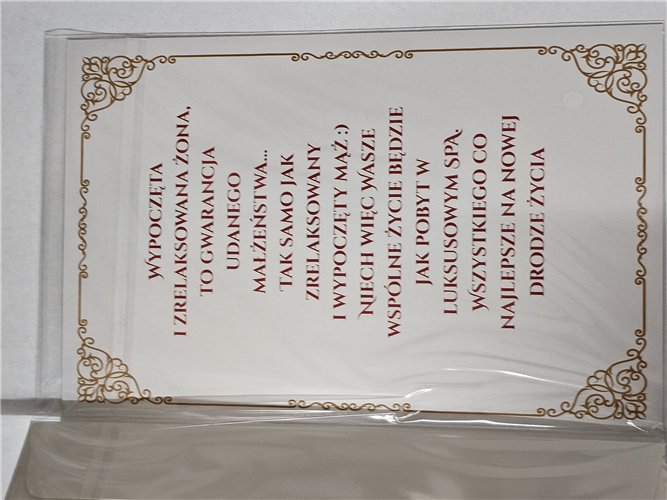 Wypoczęta
i zrelaksowana żona,
to gwarancja
udanego
małżeństwa...
Tak samo jak
zrelaksowany
i wypoczęty mąż :)
Niech więc Wasze
wspólne życie będzie
jak pobyt w
luksusowym SPA.
Wszystkiego co
najlepsze na nowej
drodze życia